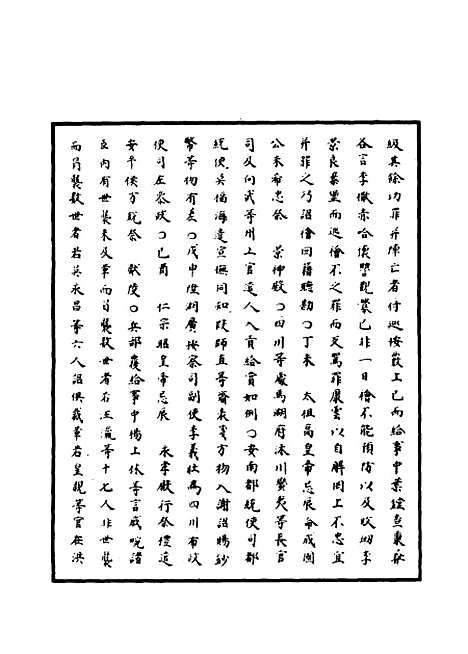 級其餘功罪并陣亡者付巡按覈上已而給事中葉鏜查秉彝
各言李撤赤合懷讐覬釁已非一日繪不能預防以及敗衂李
景良暴璺而巡繪不之罪而反罵罪康雲以自解罔上不忠宜
并罪之乃詔繪回籍聽勘○丁未 太祖高皇帝忌辰命成國
公朱希忠祭 景神殿○四川等處馬湖府沐川蠻夷等長官
司及向武等州土官遣人入貢給賞如例○安南都統使司都
統使莫福海遣宣撫同知段師直等齎表箋方物入謝詔賜鈔
幣等物有差○戊申陞湖廣按察司副使李義壯為四川布政
使司左參政○己酉 仁宗昭皇帝忌辰 永孝殿行祭禮遣
安平侯方銳祭 獻陵○兵部覆給事中楊上林等言戚畹諸
臣內有世襲未及革而冒襲數世者有王瀛等十七人非世襲
而冒襲數世者若吳永昌等六人詔俱裁革若皇親等官在洪